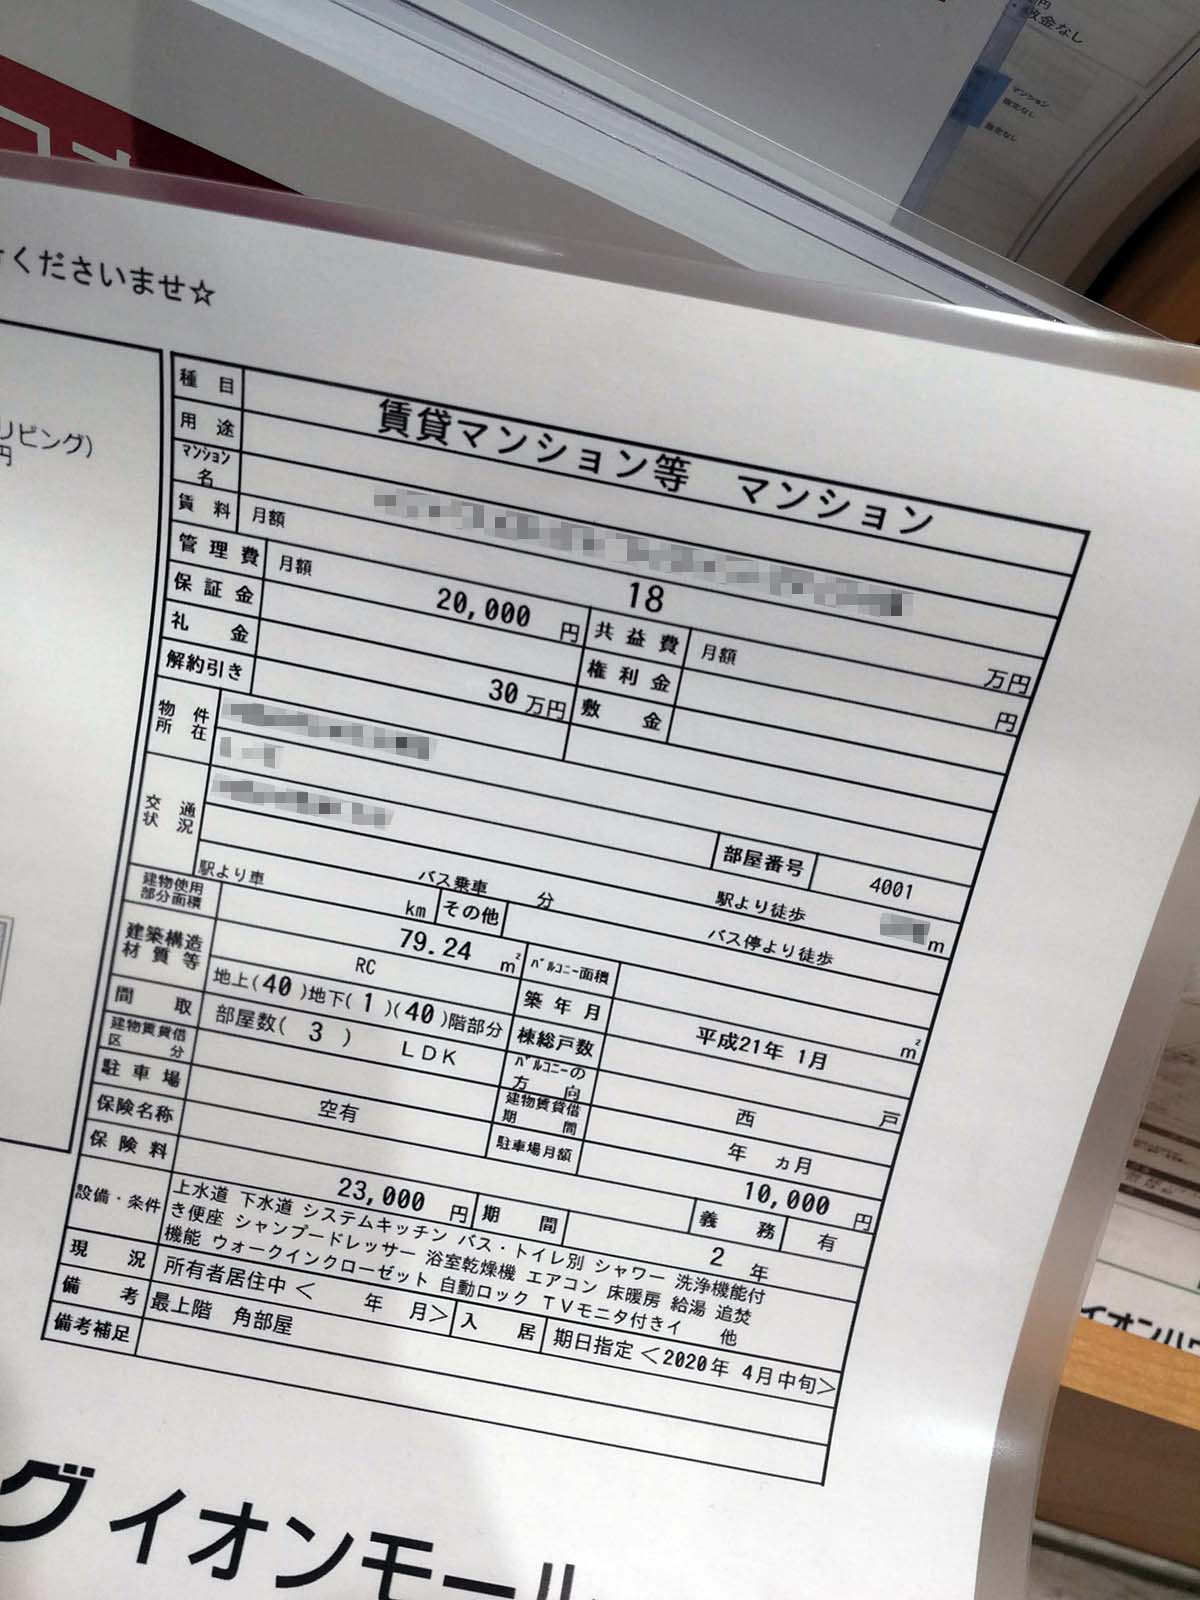 円
敷金なし
マンション
指定なし
指定なし
くださいませ☆
リビング)
円
種目 賃貸マンション等 マンション
用途
マンション名
賃料 月額 18 万円
管理費 月額 20,000 円 共益費 月額 円
保証金 権利金
礼金 30 万円 敷金
解約引き
物件所在
部屋番号 4001
交通状況 駅より徒歩 m
駅より車 バス乗車 分 バス停より徒歩
km その他
建物使用部分面積 79.24 ㎡ バルコニー面積 ㎡
建築構造材質等 RC 築年月 平成21年 1月
地上(40)地下(1)(40)階部分 棟総戸数 戸
間取 部屋数( 3 ) LDK バルコニーの方向 西
建物賃貸借区分 建物賃貸借期間 年 ヵ月
駐車場 空有 駐車場月額 10,000 円
保険名称
保険料 23,000 円 期間 2 年 義務 有
設備・条件 上水道 下水道 システムキッチン バス・トイレ別 シャワー 洗浄機能付
き便座 シャンプードレッサー 浴室乾燥機 エアコン 床暖房 給湯 追焚
機能 ウォークインクローゼット 自動ロック TVモニタ付きイ 他
現況 所有者居住中 < 年 月> 入居 期日指定 <2020年 4月中旬>
備考 最上階 角部屋
備考補足
グ イオンモール
イオンハウ